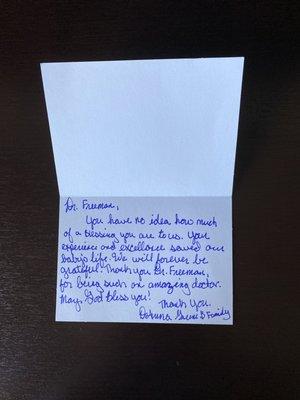 Dr. Freeman,
You have no idea how much
of a blessing you are to us. Your
experience and excellence saved our
baby's life. We will forever be
grateful! Thank you Dr. Freeman,
for being such an amazing doctor.
May God bless you!
Thank You.
& Family